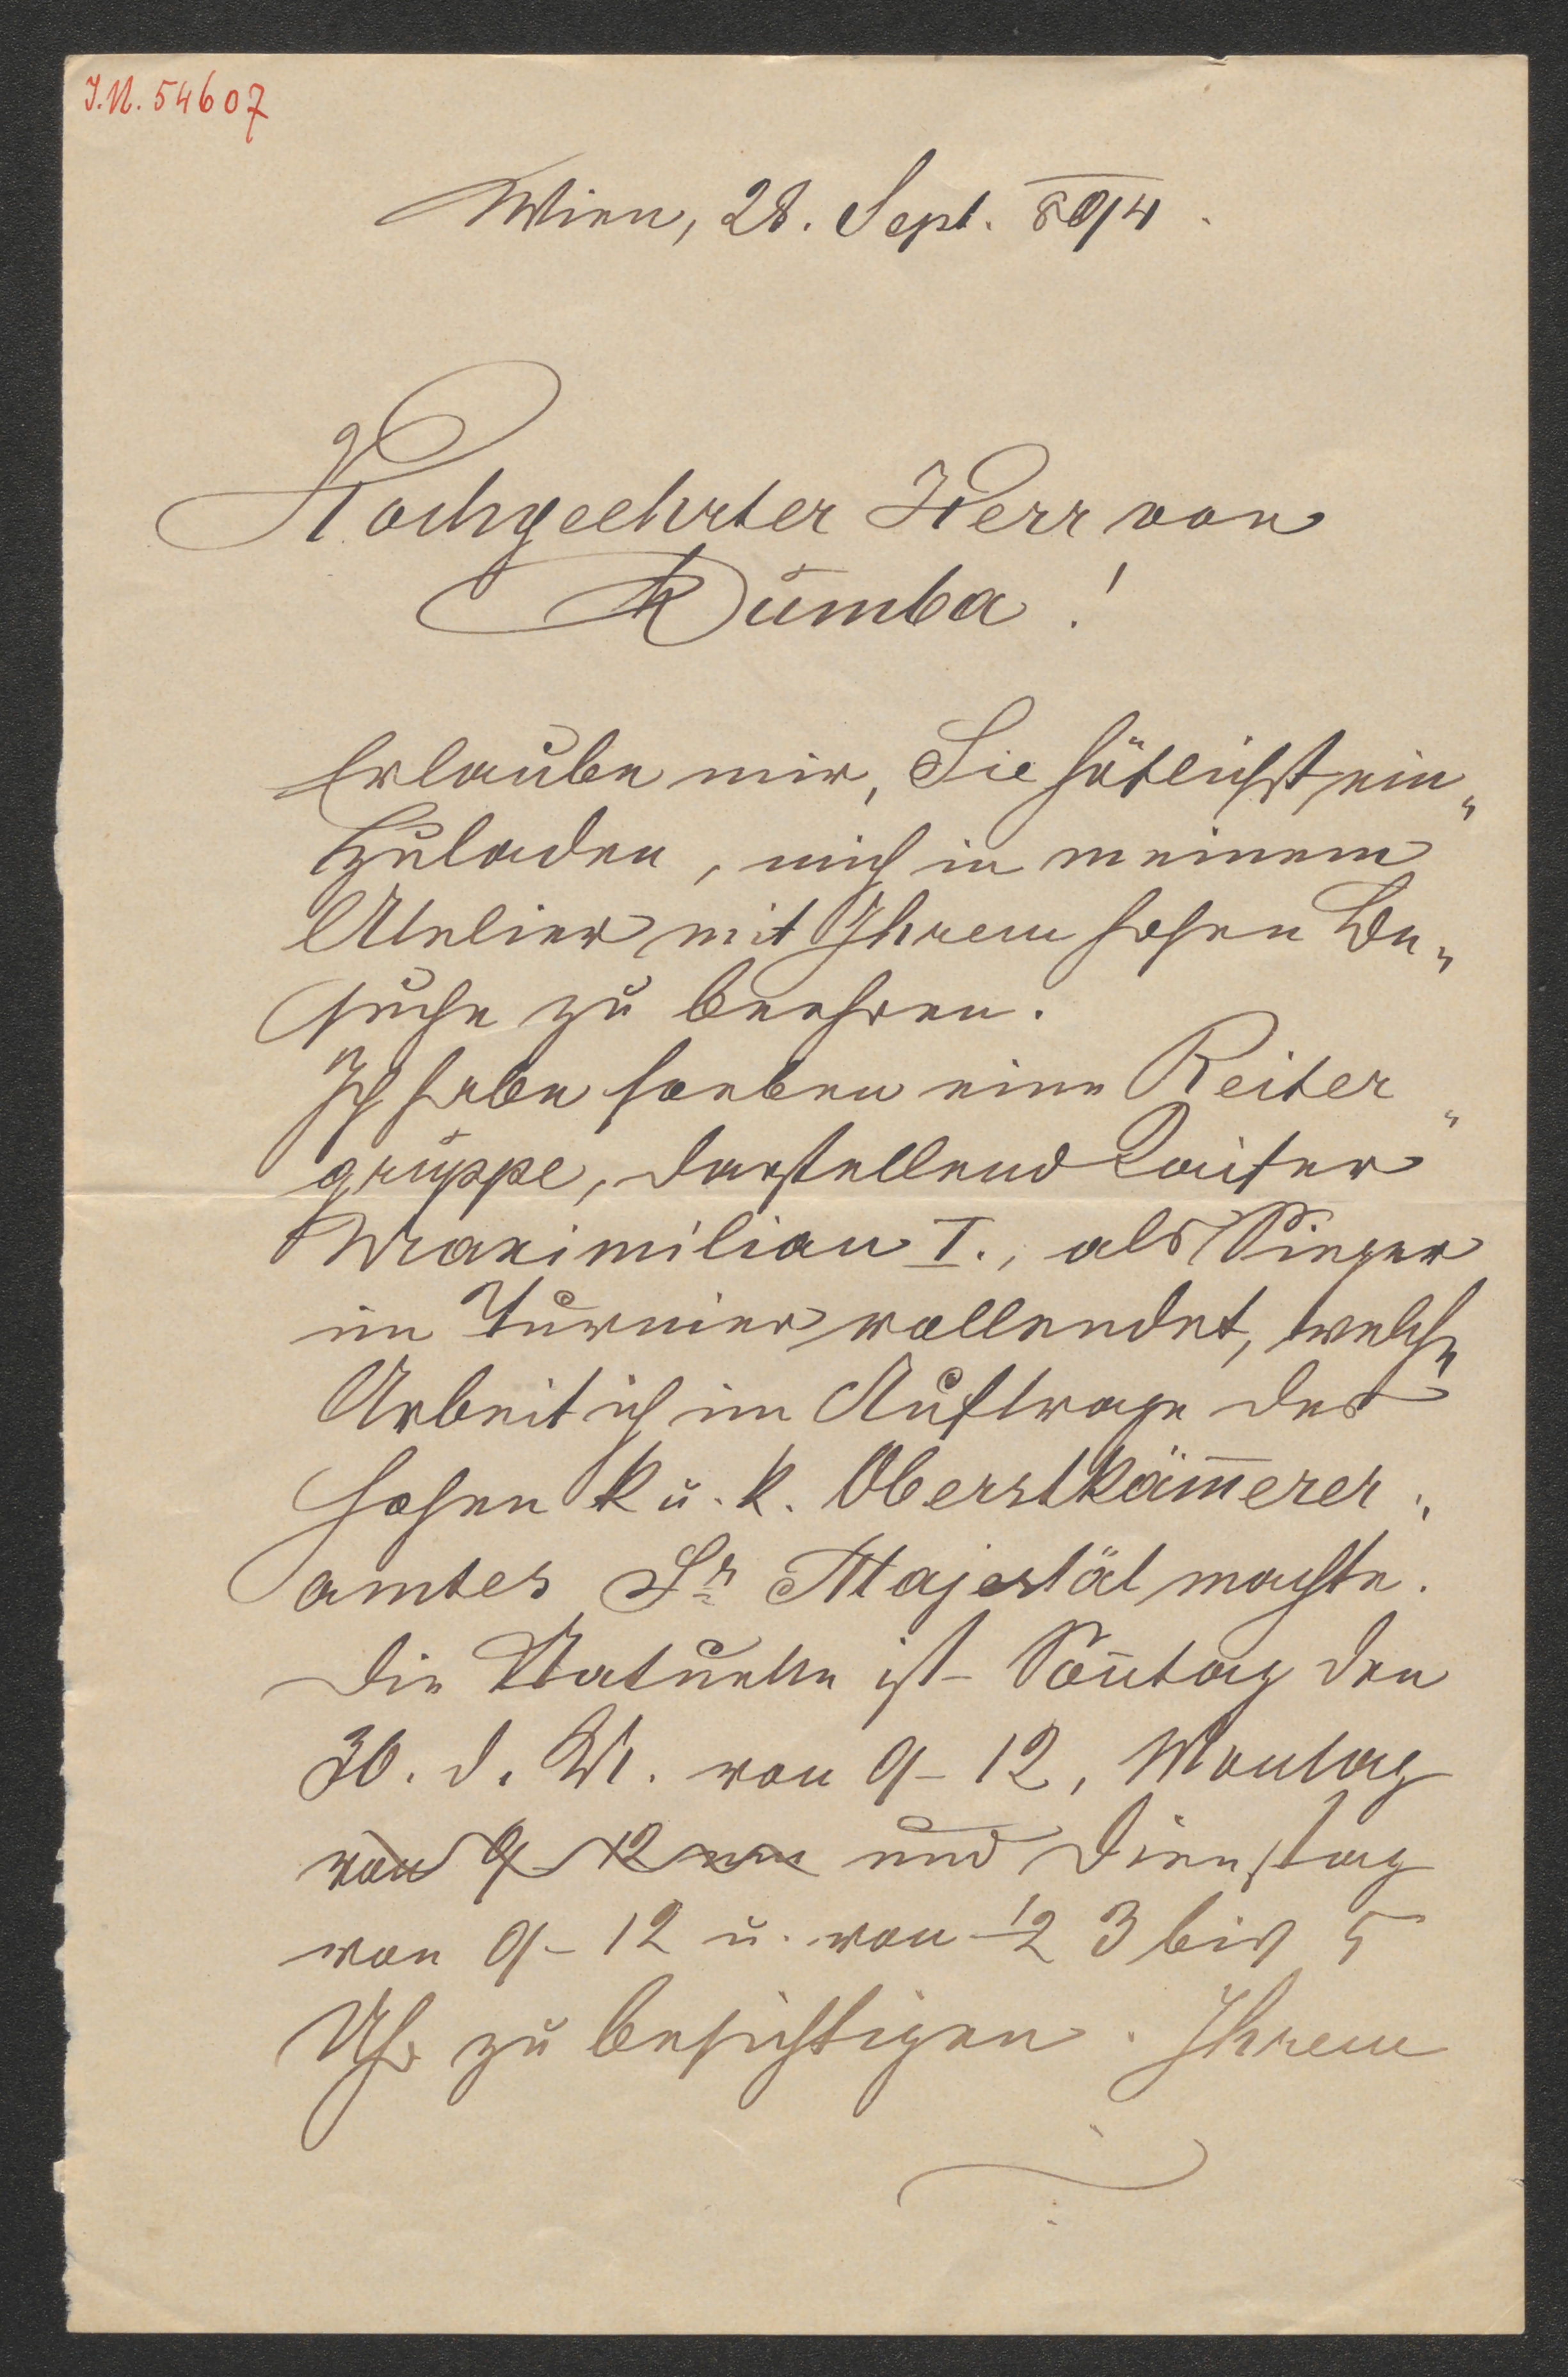 I.N. 54607
Wien, 28. Sept. 894.
Hochgeehrter Herr von
Dumba!
Erlaube mir, Sie höflichst ein„
zuladen, mich in meinem
Atelier mit Ihrem hohen Be„
suche zu beehren.
Ich habe soeben eine Reiter„
gruppe, darstellend Kaiser
Maximilian I., als Sieger
im Turnier vollendet, welche
Arbeit ich im Auftrage des
hohen k u. k. Oberstkäm̅erer„
amtes Sr Majestät machte.
Die Statuette ist Son̅tag den
30. d. M. von 9–12, Montag
von 9–12 und Dienstag
von 9–12 u. von ½ 3 bis 5
Uhr zu besichtigen. Ihrem